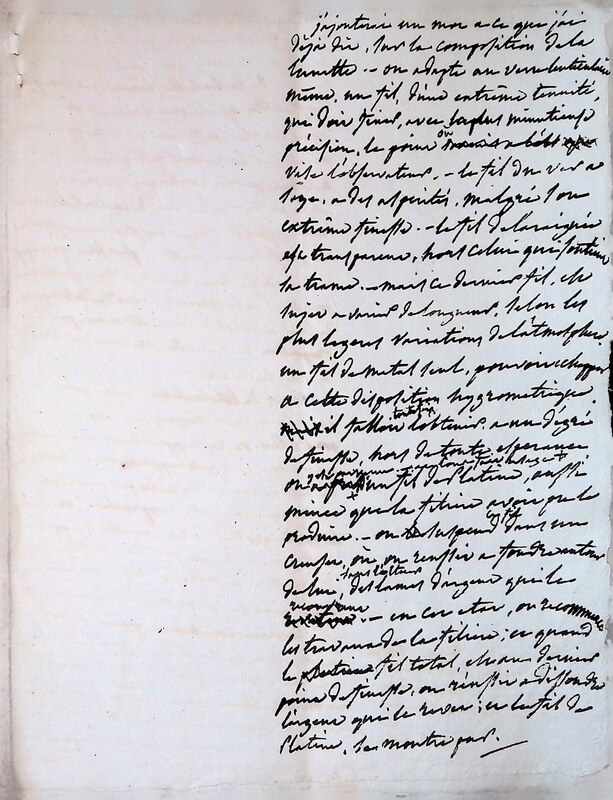 j'ajouterai un mot a ce que j'ai
déja dit, sur la composition de la
lunette. - on adapte au verre lenticulaire
même, un fil, d'une extrême tenuité,
qui doit fixer, avec la plus minutieuse
précision, le point où
vise l'observateur. - le fil du ver a
soye, a des asperités, malgré son
extrême finesse. - le fil de l'araignée
est transparent, hors celui qui soutient
sa trame. - mais ce dernier fil, est
sujet a varier de longueur, selon les
plus legeres variations de l'atmosphere.
un fil de metal seul, pouvoit echapper
a cette disposition hygrometrique.
il falloit l'obtenir, a un dégré
de finesse, hors de toute esperance
on un fil de Platine, aussi
mince que la filiere avoit pu le
produire. - on le suspend dans un
creuset, où, on réussit a fondre autour
de lui, des lames d'argent qui le
recouvrent - en cet etat, on recommence
les travaux de la filiere; et quand
le fil total, est au dernier
point de finesse, on réussit a dissoudre
l'argent qui le revet; et le fil de
Platine, se montre pur.